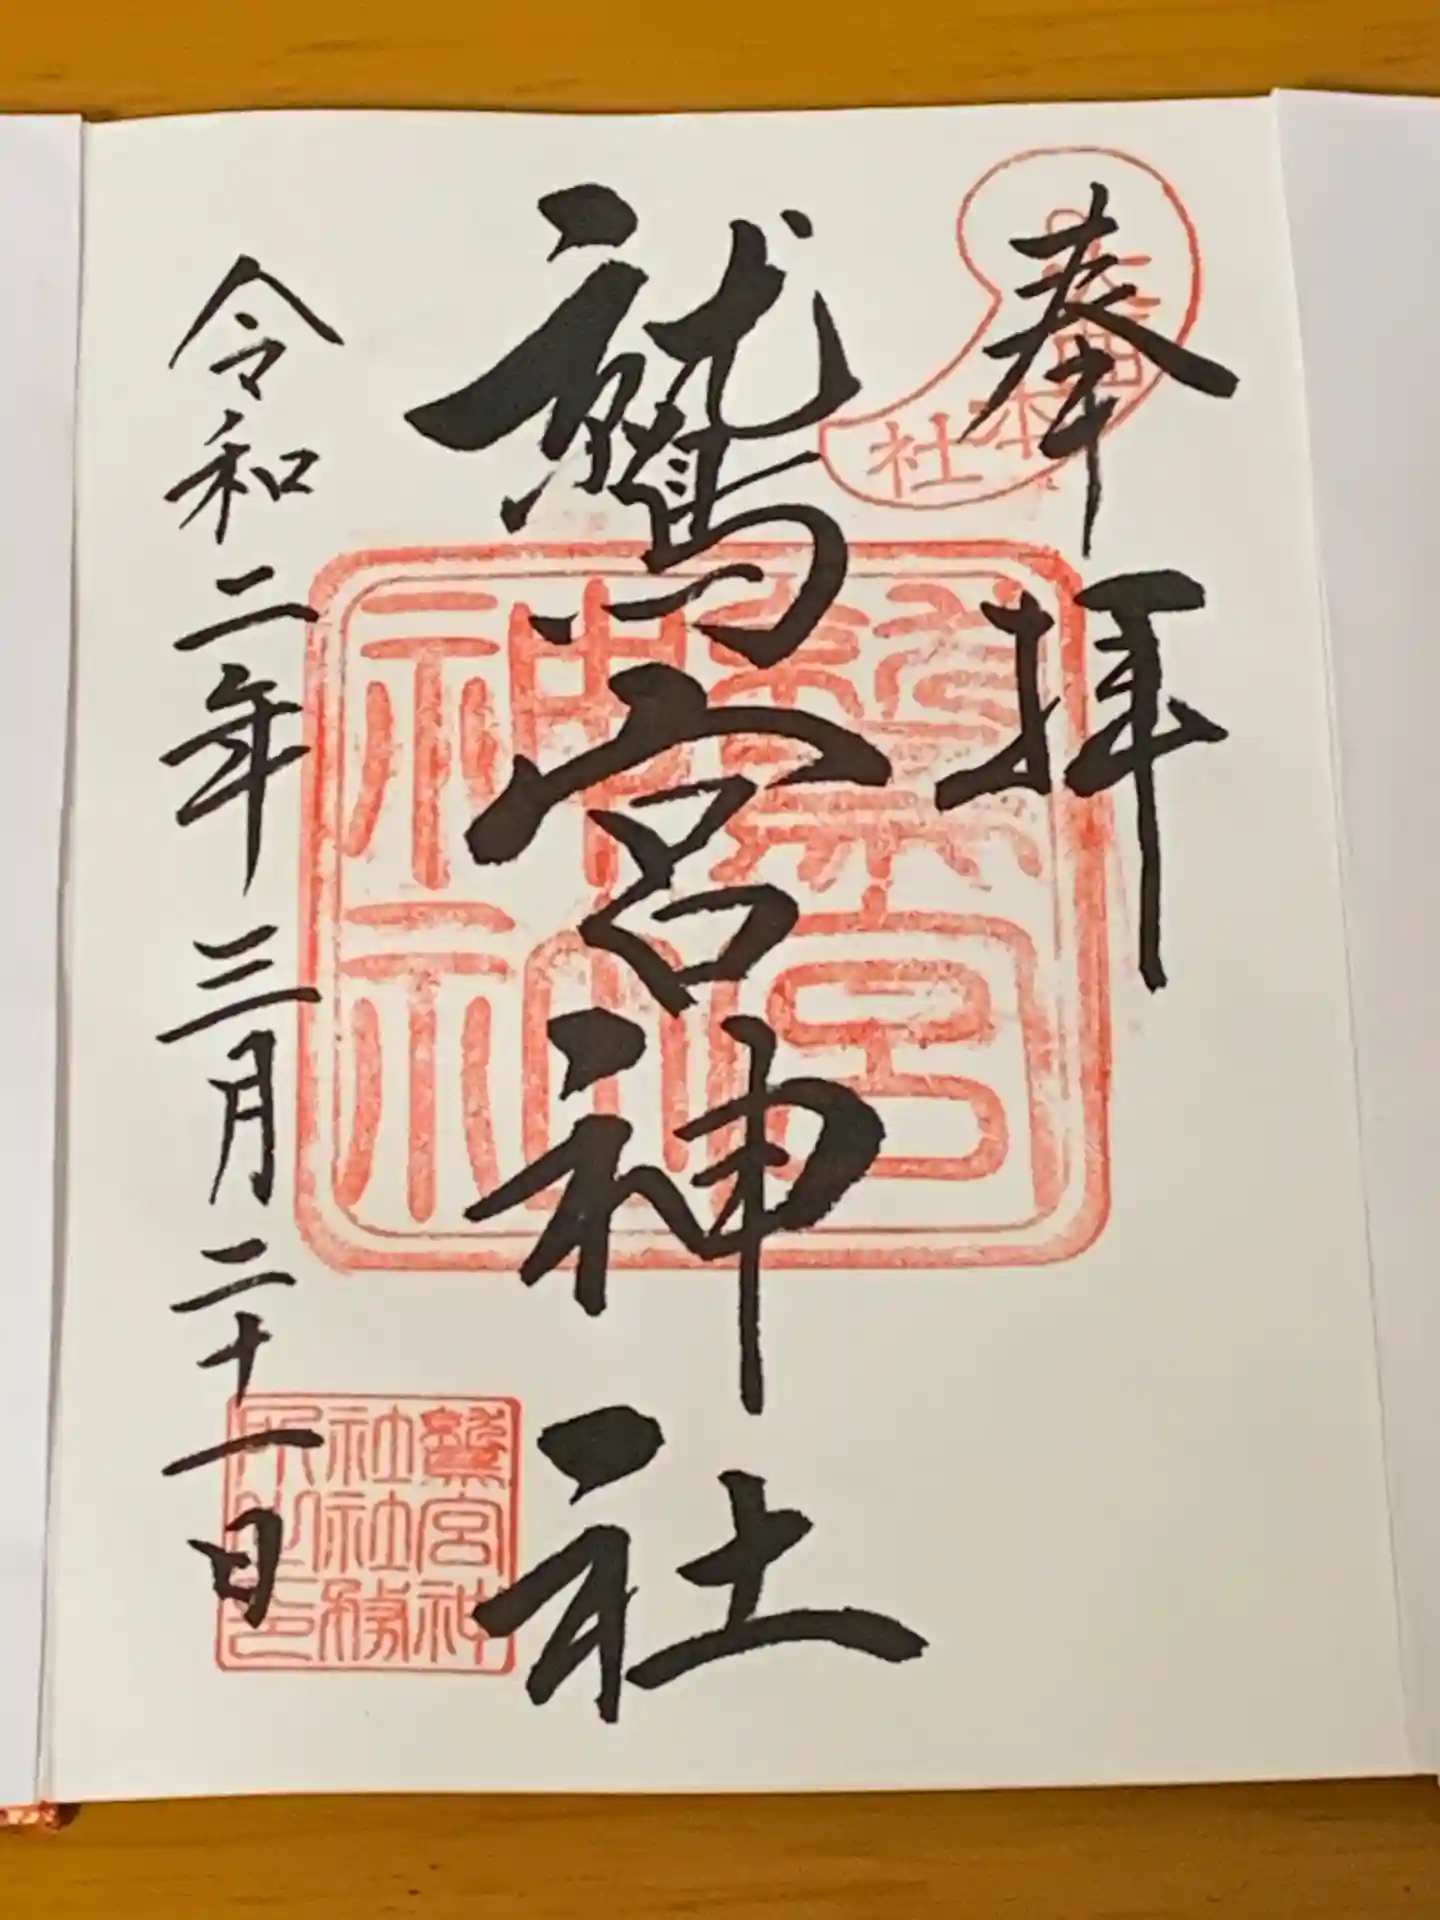 奉拝
本社
鷲宮神社
鷲宮神社
鷲宮神
社社務
所之印
令和二年三月二十一日